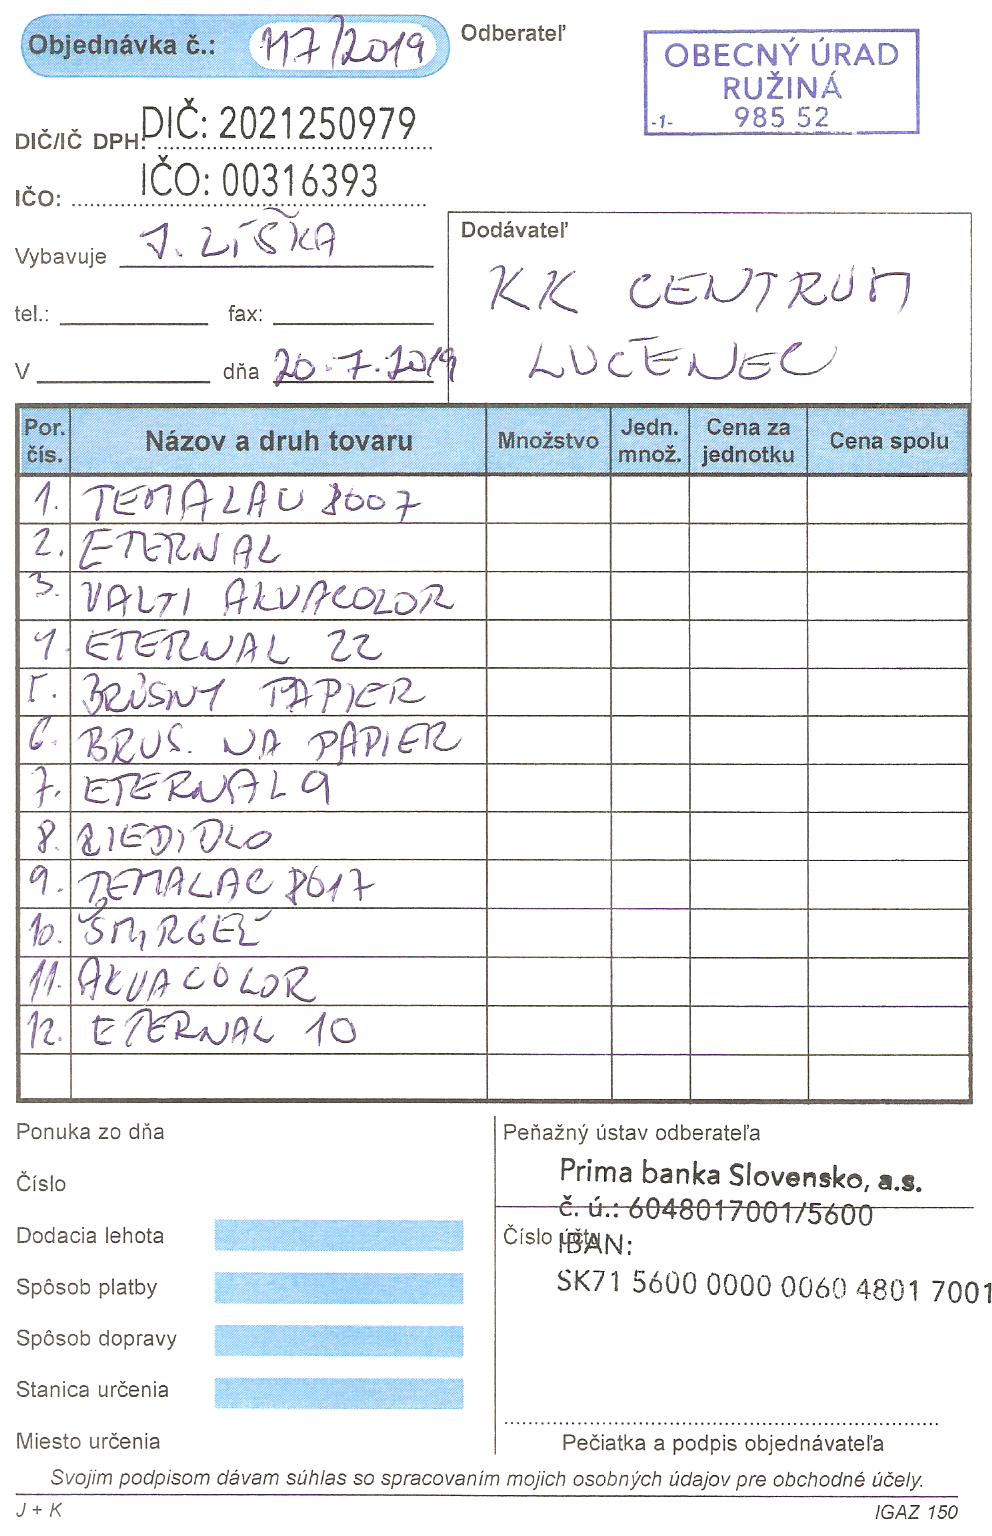 Objednávka č.: 117/2019
Odberateľ
OBECNÝ ÚRAD
RUŽINÁ
-1- 985 52
DIČ/IČ DPH: DIČ: 2021250979
IČO: IČO: 00316393
Vybavuje J. LÍŠKA
tel.: fax:
V dňa 20.7.2019
Dodávateľ
KK CENTRUM
LUČENEC
Por. čís. Názov a druh tovaru Množstvo Jedn. množ. Cena za jednotku Cena spolu
1. TEMALAC 8007
2. ETERNAL
3. VALTI AKVACOLOR
4. ETERNAL 22
5. BRÚSNY PAPIER
6. BRUS. NA PAPIER
7. ETERNAL 9
8. RIEDIDLO
9. TEMALAC 8017
10. ŠMIRGEĽ
11. AKVACOLOR
12. ETERNAL 10
Ponuka zo dňa
Číslo
Dodacia lehota
Spôsob platby
Spôsob dopravy
Stanica určenia
Miesto určenia
Peňažný ústav odberateľa
Prima banka Slovensko, a.s.
č. ú.: 6048017001/5600
Číslo účtu
IBAN:
SK71 5600 0000 0060 4801 7001
Pečiatka a podpis objednávateľa
Svojim podpisom dávam súhlas so spracovaním mojich osobných údajov pre obchodné účely.
J + K
IGAZ 150